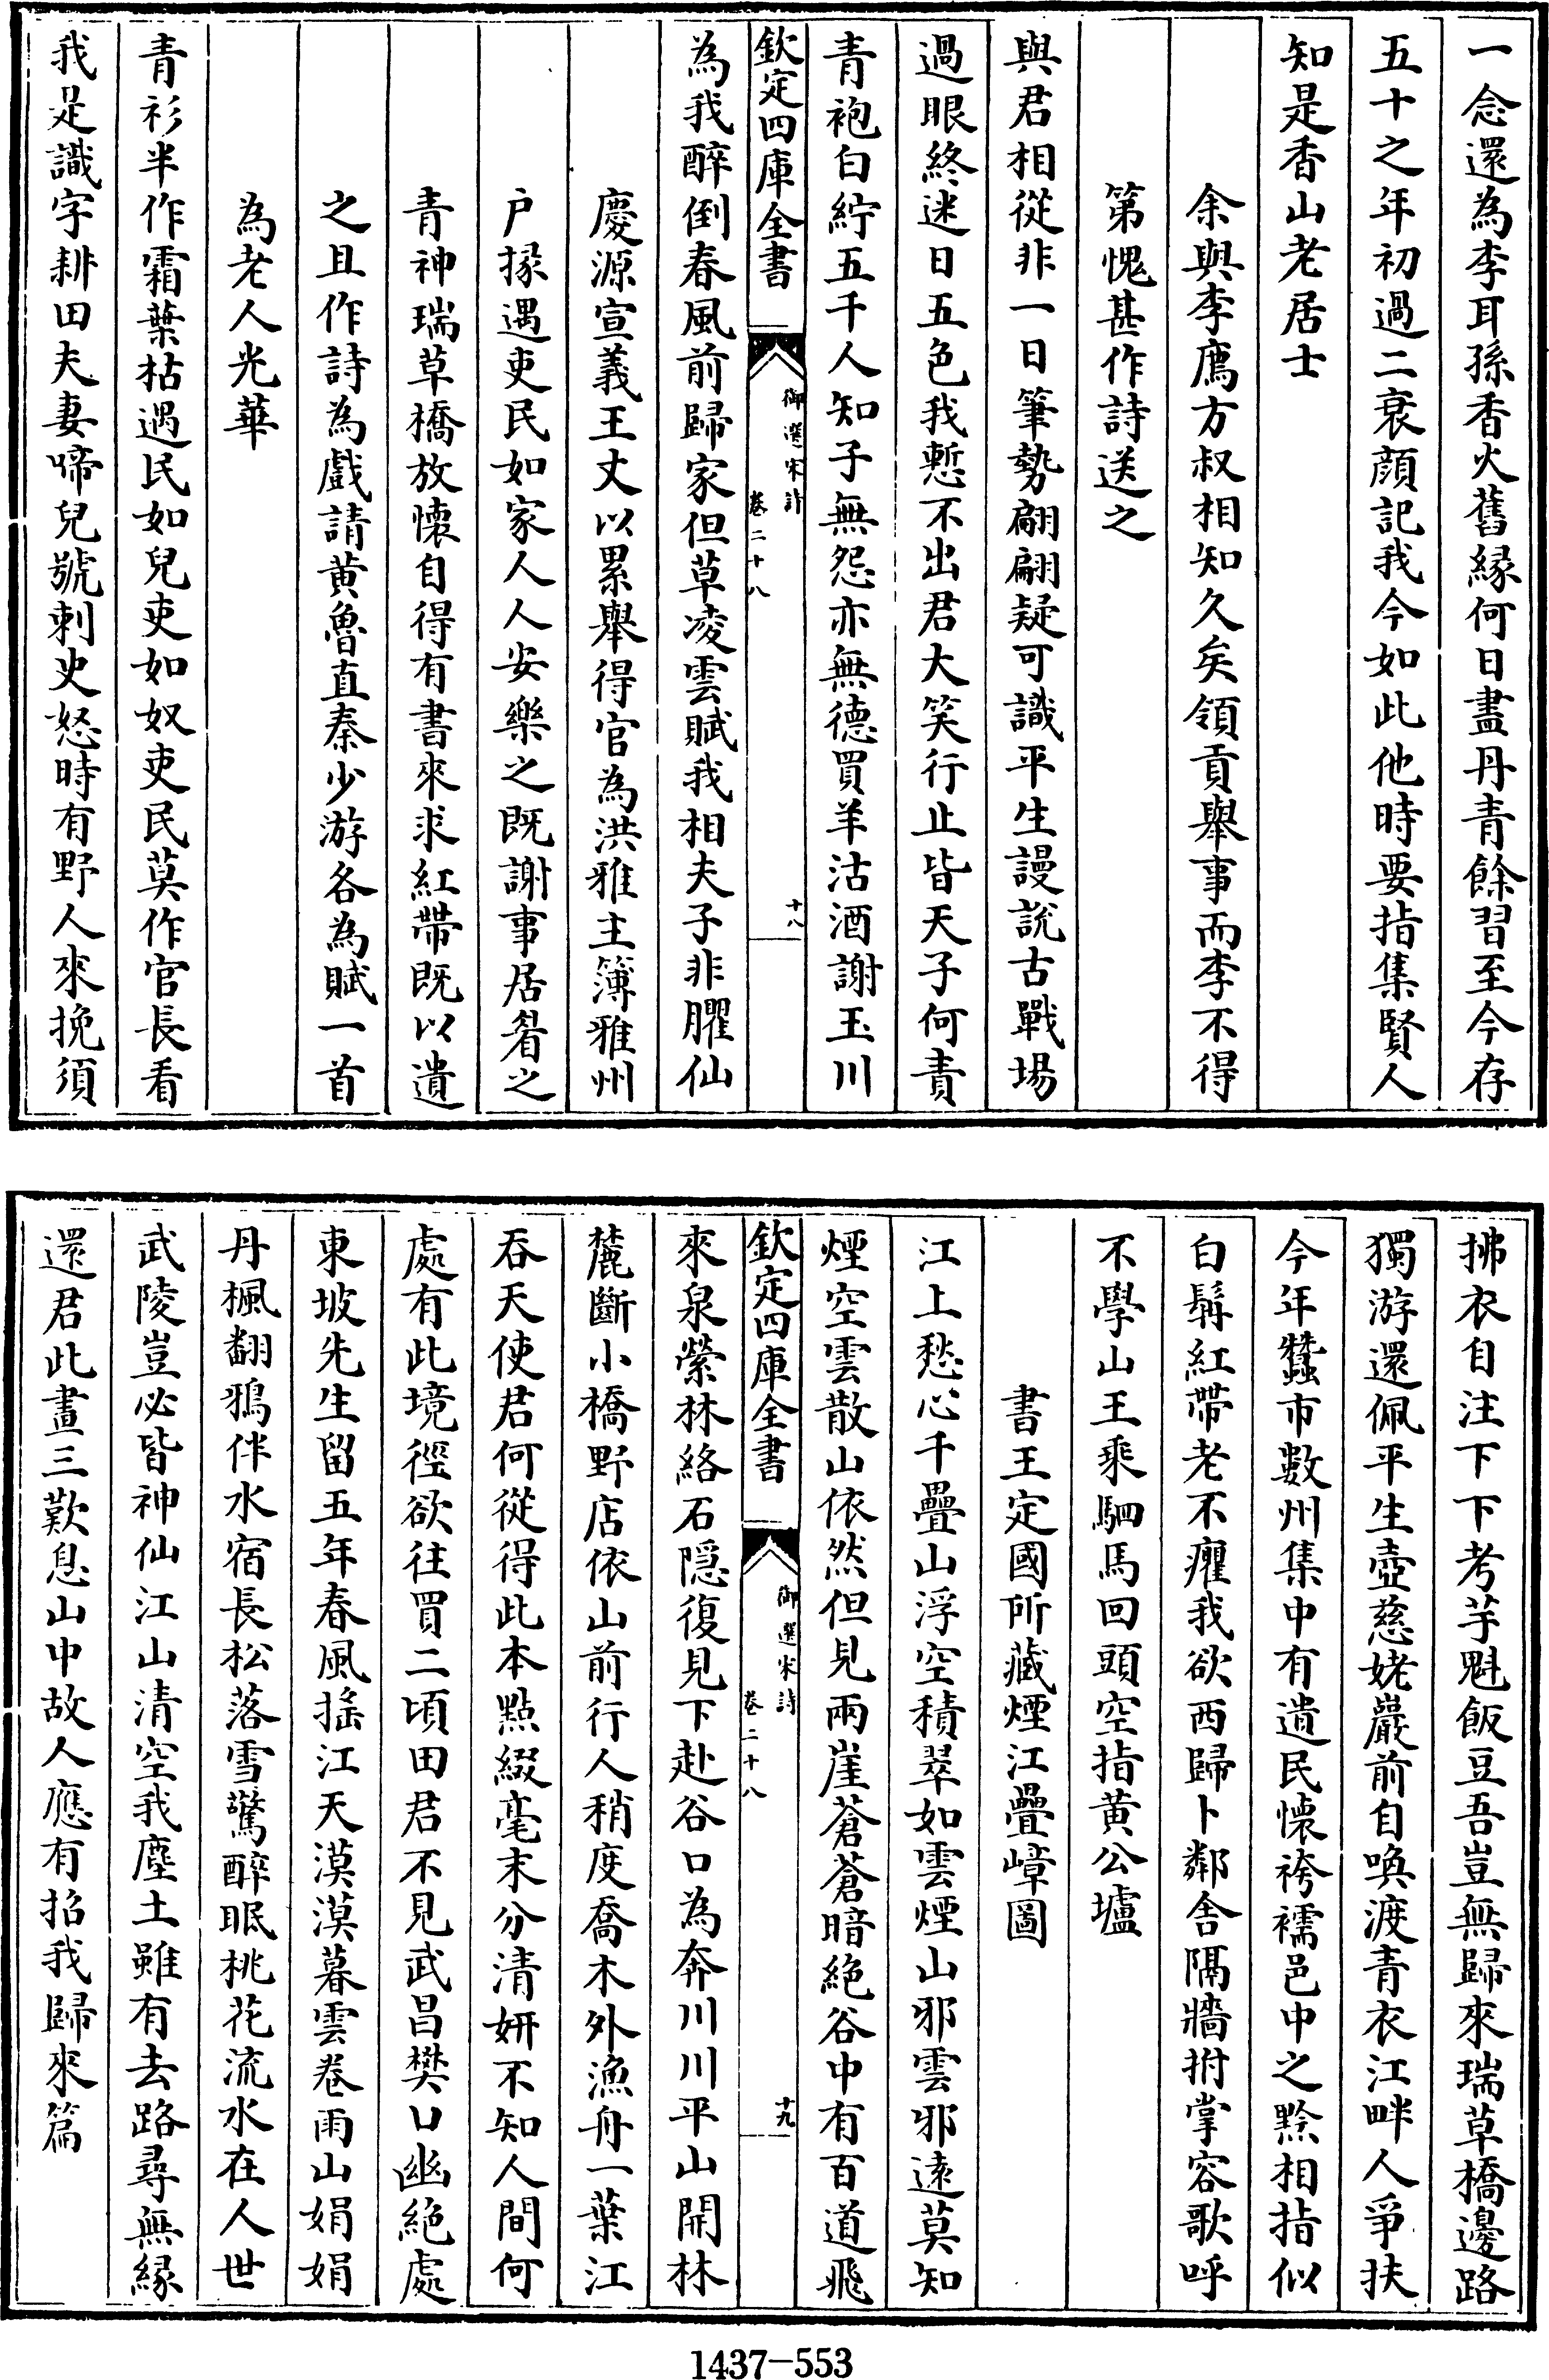 一念還為李耳孫香火舊緣何日盡丹青餘習至今存
五十之年初過二衰顔記我今如此他時要指集賢人
知是香山老居士
余與李廌方叔相知久矣領貢舉事而李不得
第愧甚作詩送之
與君相從非一日筆勢翩翩疑可識平生謾説古戰場
過眼終迷日五色我慙不出君大笑行止皆天子何責
青袍白紵五千人知子無怨亦無德買羊沽酒謝玉川
欽定四庫全書
御選宋詩
卷二十八
十八
為我醉倒春風前歸家但草凌雲賦我相夫子非臞仙
慶源宣義王丈以累舉得官為洪雅主簿雅州
户掾遇吏民如家人人安樂之既謝事居眷之
青神瑞草橋放懷自得有書來求紅帶既以遺
之且作詩為戲請黄魯直秦少游各為賦一首
為老人光華
青衫半作霜葉枯遇民如兒吏如奴吏民莫作官長看
我是識字耕田夫妻啼兒號刺史怒時有野人來挽須
拂衣自注下下考芋魁飯豆吾豈無歸來瑞草橋邊路
獨游還佩平生壺慈姥巖前自喚渡青衣江畔人爭扶
今年蠶市數州集中有遺民懷袴襦邑中之黔相指似
白髯紅帶老不癯我欲西歸卜鄰舍隔牆拊掌容歌呼
不學山王乘駟馬回頭空指黄公壚
書王定國所藏煙江疊嶂圖
江上愁心千疊山浮空積翠如雲煙山邪雲邪逺莫知
煙空雲散山依然但見兩崖蒼蒼暗絶谷中有百道飛
欽定四庫全書
御選宋詩
卷二十八
十九
來泉縈林絡石隠復見下赴谷口為奔川川平山開林
麓斷小橋野店依山前行人稍度喬木外漁舟一葉江
吞天使君何從得此本點綴毫末分清妍不知人間何
處有此境徑欲往買二頃田君不見武昌樊口幽絶處
東坡先生留五年春風摇江天漠漠暮雲卷雨山娟娟
丹楓翻鴉伴水宿長松落雪驚醉眠桃花流水在人世
武陵豈必皆神仙江山清空我塵土雖有去路尋無緣
還君此畫三歎息山中故人應有招我歸來篇
1437-553